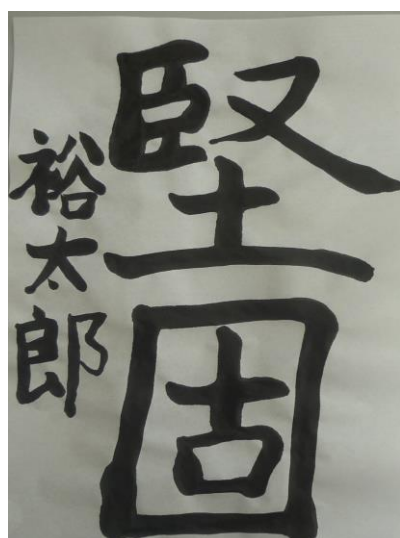 堅固
裕太郎